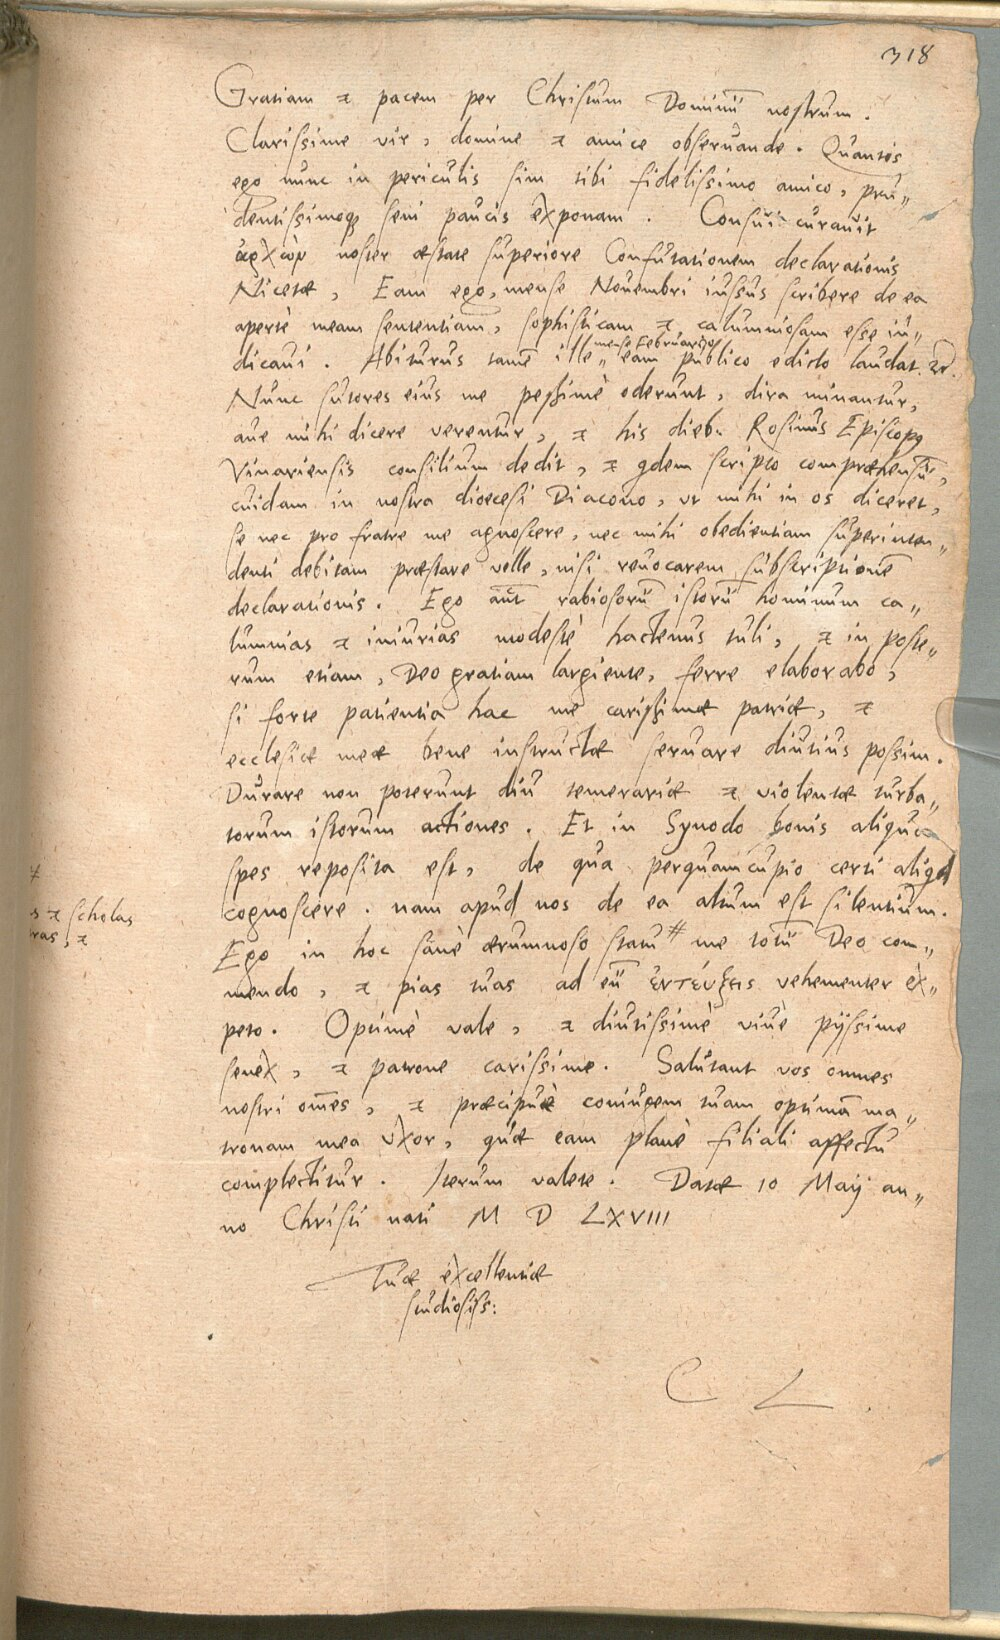 318
Gratiam & pacem per Christum Dominū nostrum.
Clarissime vir, domine & amice obseruande. Quantis
ego nunc in periculis sim tibi fidelissimo amico, pru„
dentissimoq; seni paucis exponam. Confici curauit
ἄρχων noster æstate superiore Confutationem declarationis
Nicetæ, Eam ego, mense Nouembri iussus scribere de ea
apertè meam sententiam, sophisticam & calumniosam esse iu„
mense Februario
dicaui. Abiturus tamē ille „ eam publico edicto laudat.
Nunc sutores eius me pessimè oderunt, dira minantur,
aue mihi dicere verentur, & his dieb. Rosinus Episcopq
Vinariensis consilium dedit, & qdem scripto compræhensū,
cuidam in nostra dioecesi Diacono, vt mihi in os diceret,
se nec pro fratre me agnoscere, nec mihi obedientiam superinten„
denti debitam præstare velle, nisi reuocarem subscriptionē
declarationis. Ego aūt rabiosorū istorū hominum ca„
lumnias & iniurias modestè hactenus tuli, & in poste„
rum etiam, Deo gratiam largiente, ferre elaborabo,
si forte patientia hac me carissimæ patriæ, &
ecclesiæ meæ bene instructæ seruare diutius possim.
Durare non poterunt diu temerariæ & violentæ turba„
torum istorum actiones. Et in Synodo bonis aliqua
spes reposita est, de qua perquam cupio certi aliqd
cognoscere. nam apud nos de ea altum est silentium.
Ego in hoc sanè ærumnoso statu # me totū Deo com„
#
& scholas
&
mendo, & pias tuas ad eū ἐντεύξεις vehementer ex„
peto. Optimè vale, & diutissimè viue pijssime
senex, & patrone carissime. Salutant vos omnes
nostri om̄es, & præcipuè coniugem tuam optimā ma„
tronam mea vxor, quæ eam planè filiali affectu
complectitur. Iterum valete. Datæ 10 Maij an„
no Christi nati M D LXVIII
Tuæ excellentiæ
studiosiss:
C L